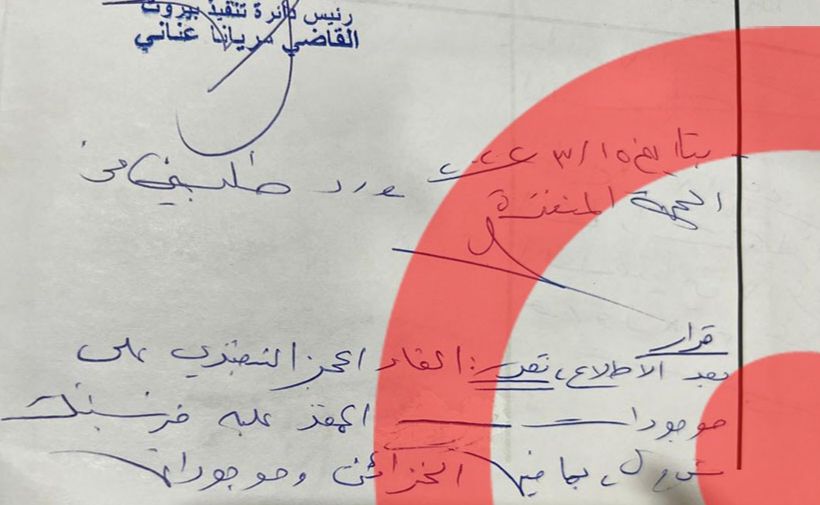 رئيس دائرة تنفيذ بيروت
القاضي مريانا عناني
بتاريخ ١٥/٣/٢٠٢٢ ورد طلبين من
الجهة المنفذة
قرار
بعد الاطلاع، نقرر: القاء الحجز التنفيذي على
موجودات المنفذ عليه فرنسبنك
ش.م.ل، بما فيها الخزائن وموجوداتها